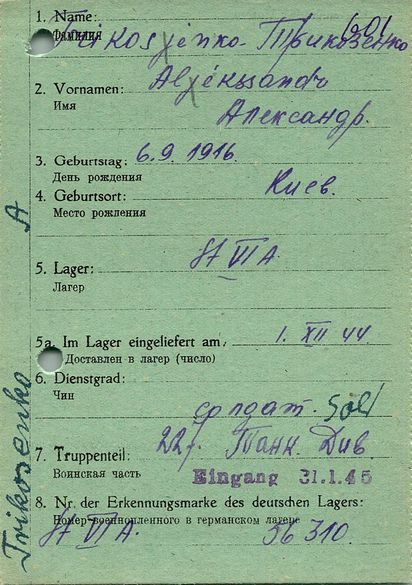 1. Name: 601
Фамилия Trikosjenko - Трикозенко
2. Vornamen: Aljekssandr
Имя Александр.
3. Geburtstag: 6.9. 1916.
День рождения
4. Geburtsort: Киев.
Место рождения
5. Lager: St VI A.
Лагер
5a. Im Lager eingeliefert am: 1. XII 44
Доставлен в лагер (число)
6. Dienstgrad:
Чин солдат. Sold
7. Truppenteil: 22. Танк. Див.
Воинская часть Eingang 31.1.45
8. Nr. der Erkennungsmarke des deutschen Lagers:
Номер военнопленного в германском лагере
St VI A. 56 310.
Trikosenko A